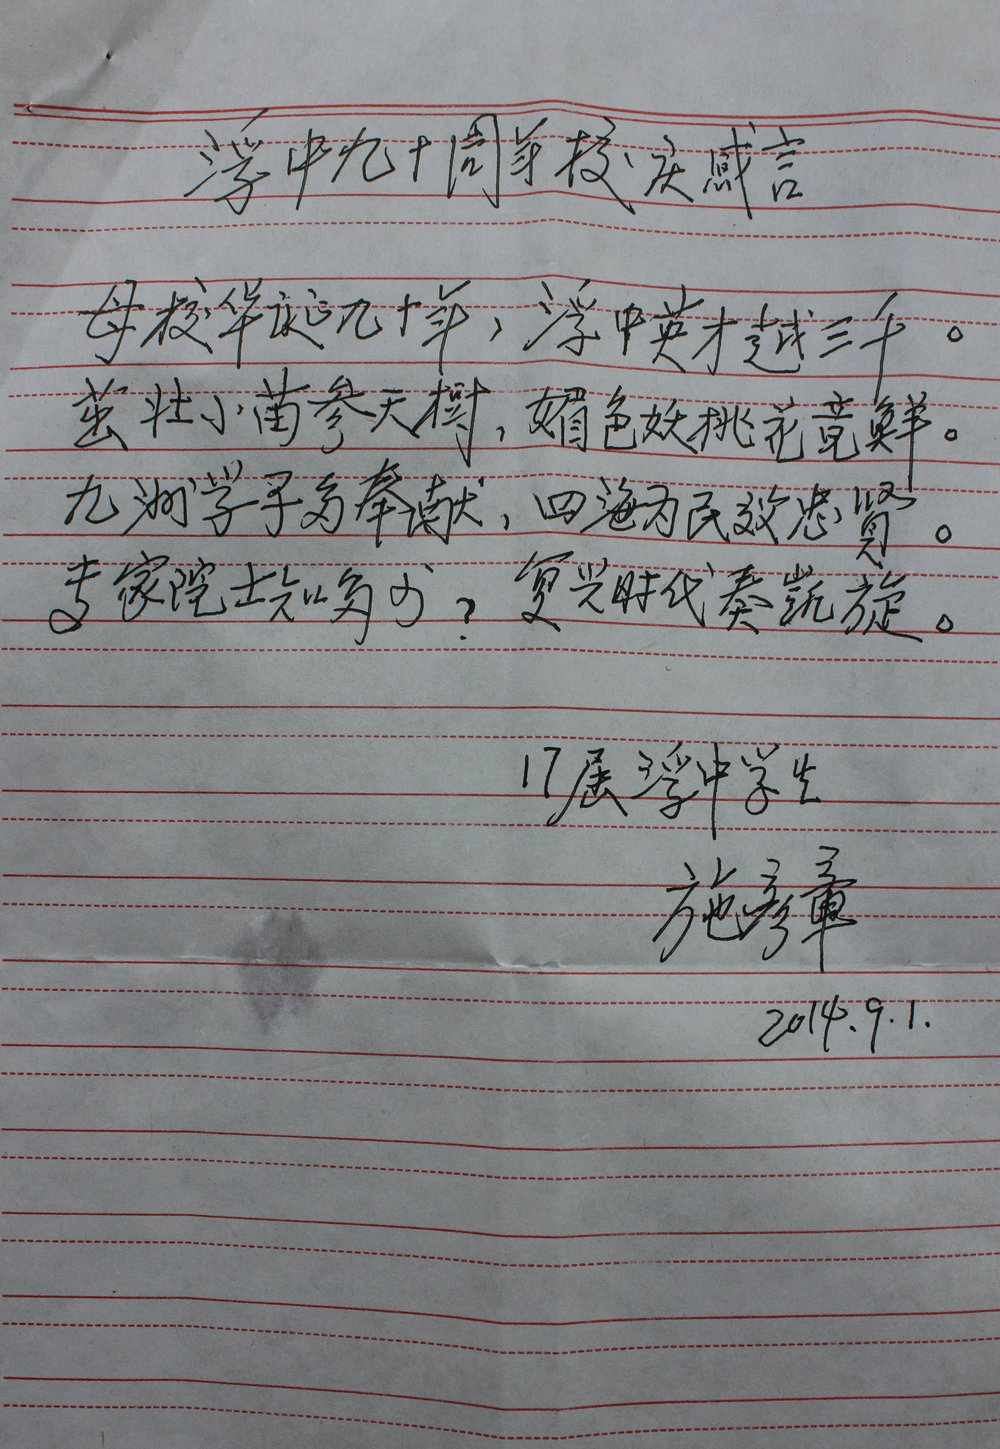 浮中九十周年校庆感言
母校华诞九十年，浮中英才越三千。
茁壮小苗参天樹，媚色妖桃花竞鲜。
九洲学子多奉献，四海为民效忠贤。
专家院士知多少？复兴时代奏凯旋。
17届浮中学生
施彦章
2014.9.1.